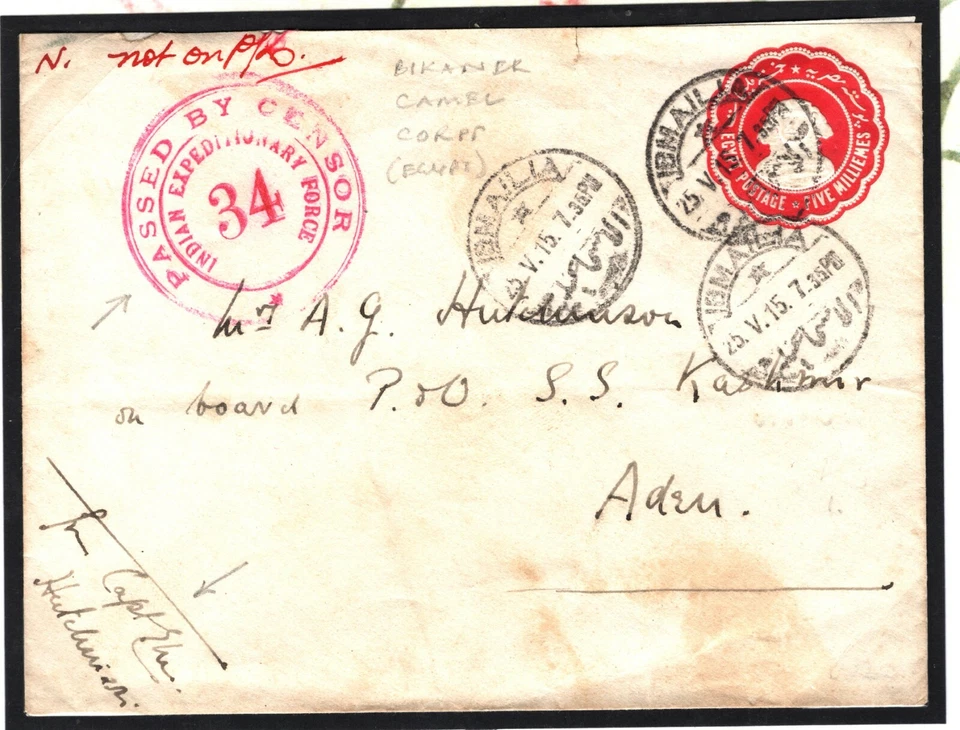 N. not on P/L.
BIKANER
CAMEL
CORPS
(EGYPT)
PASSED BY CENSOR
INDIAN EXPEDITIONARY FORCE
34
ISMAILIA
25.V.15. 7.35PM
الاسماعيلية
ISMAILIA
25.V.15. 7.35PM
الاسماعيلية
ISMAILIA
25.V.15. 7.35PM
الاسماعيلية
EGYPT POSTAGE ★ FIVE MILLIEMES
Mrs A. G. Hutchinson
on board P. & O. S. S. Kashmir
Aden.
fm Capt
Hutchinson.